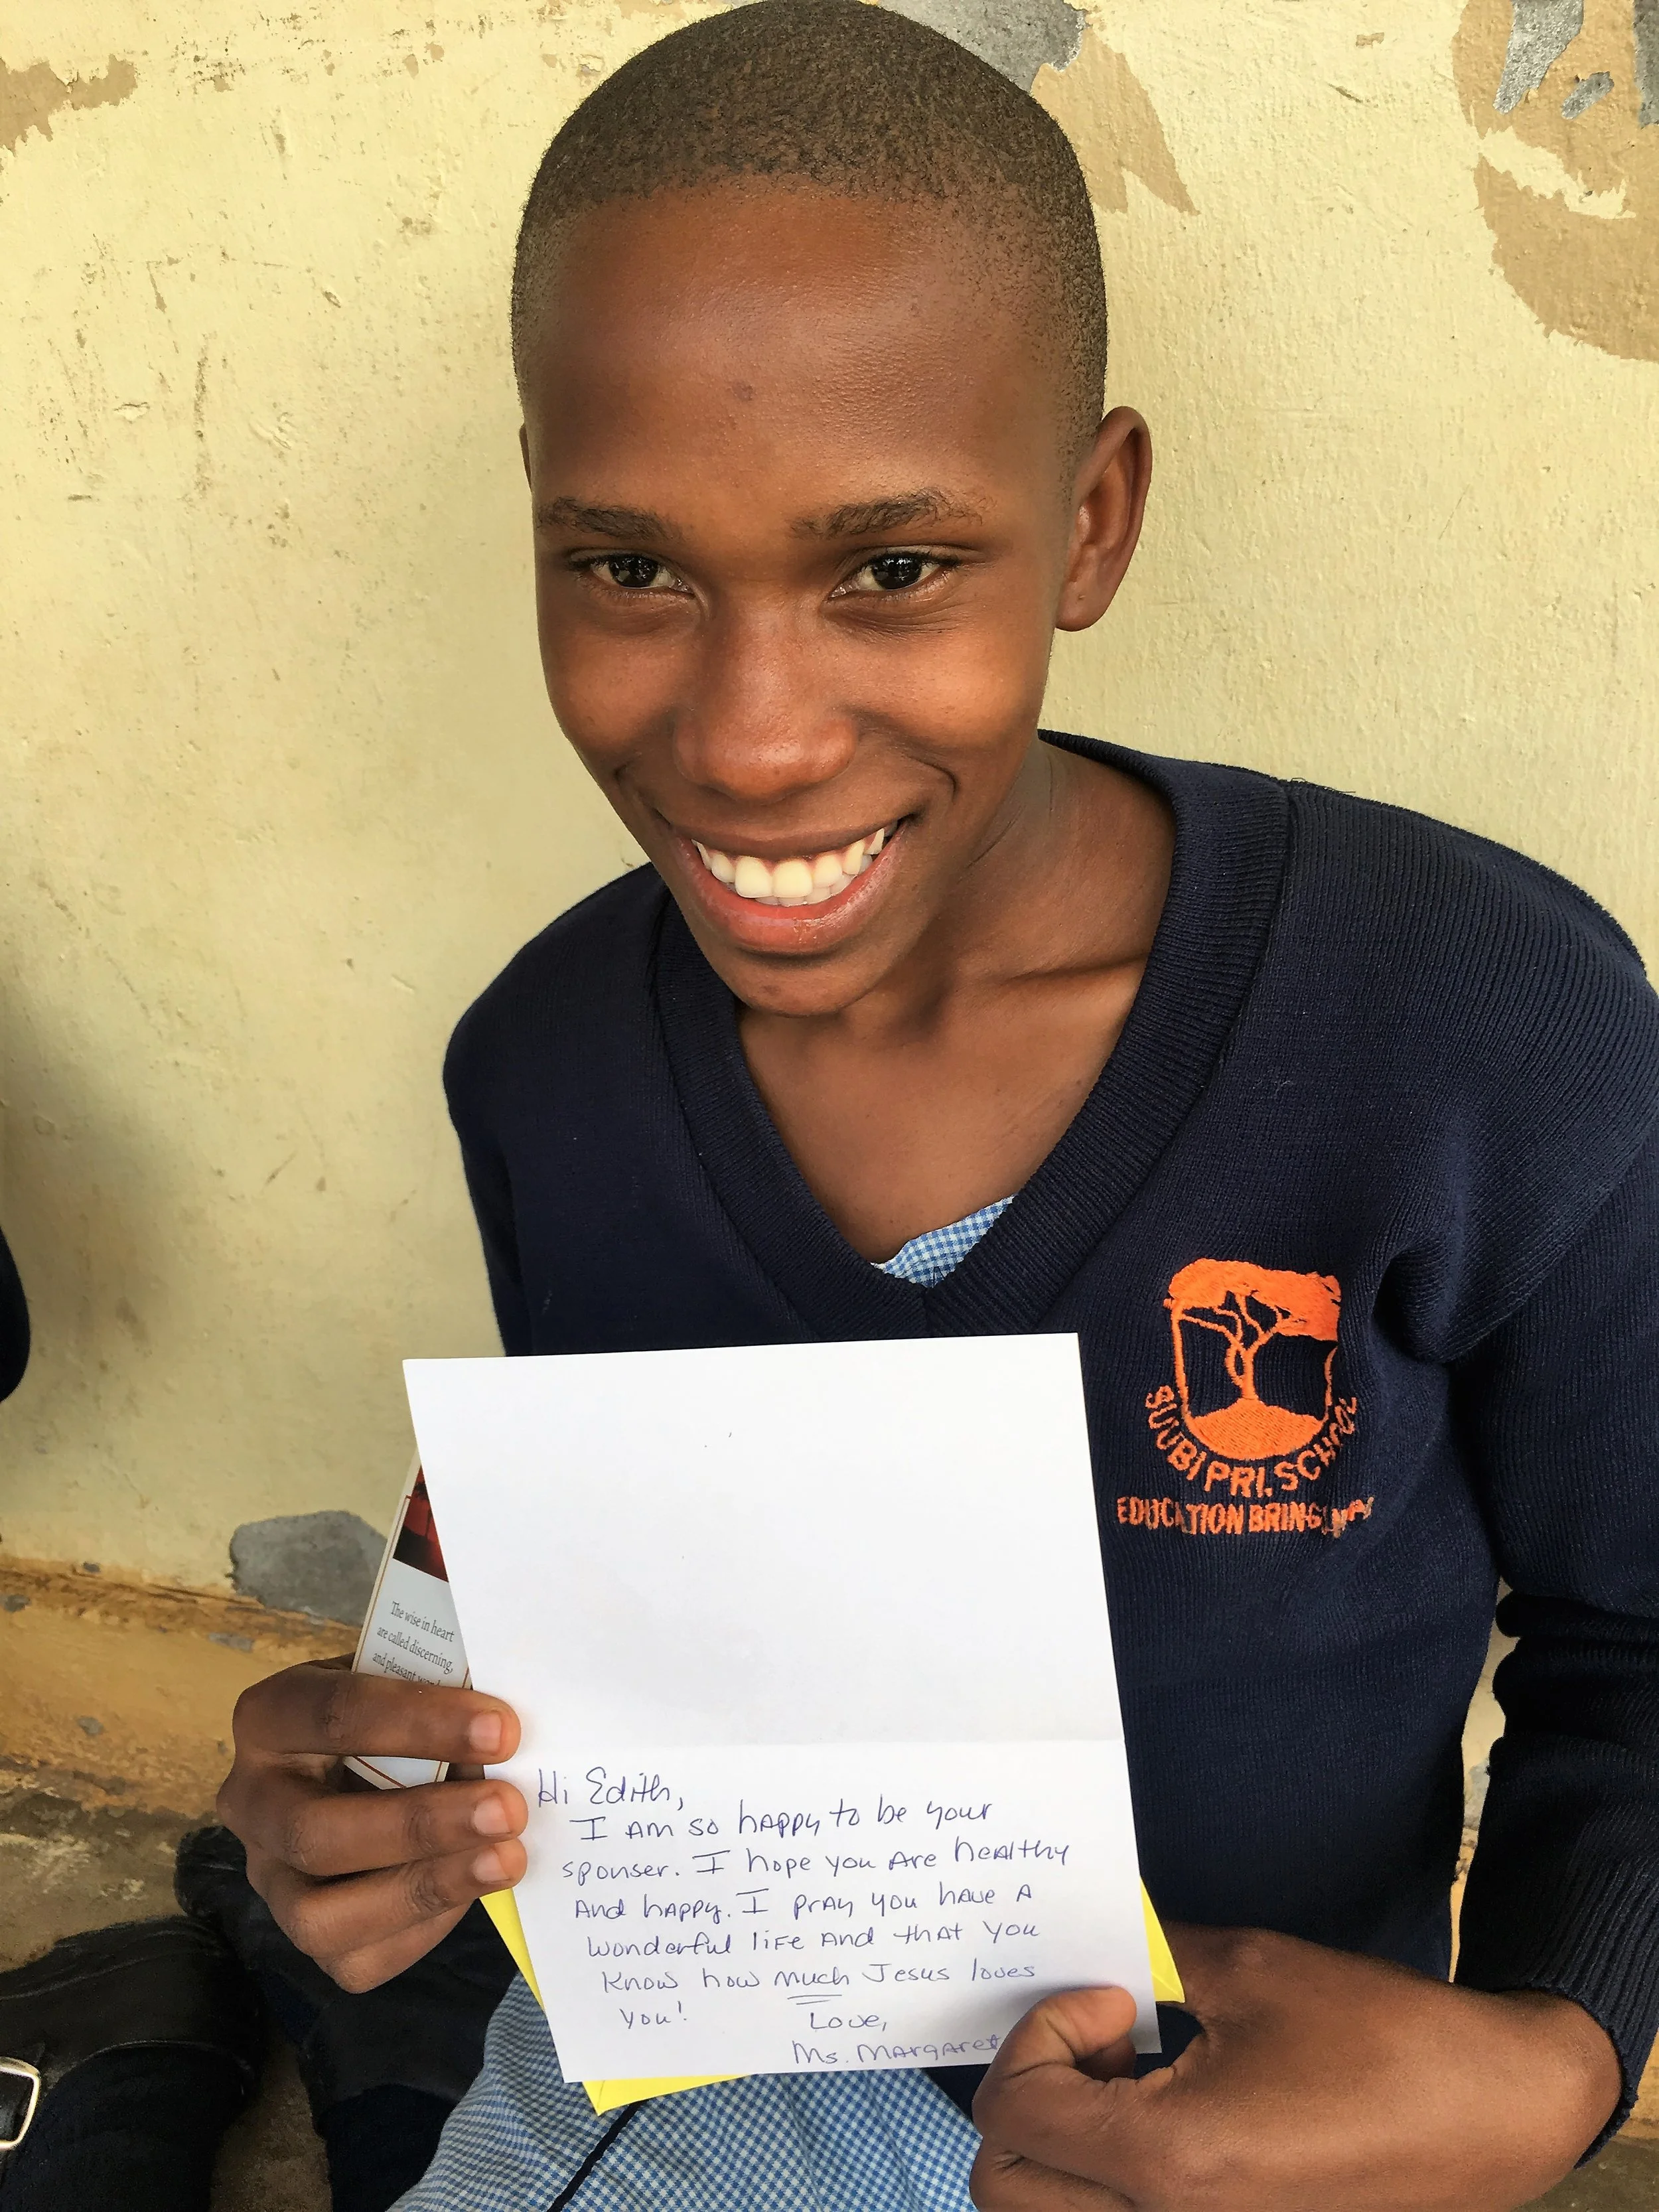 SUUBI PRI. SCHOOL
EDUCATION BRINGS
The wise in heart
are called discerning,
and pleasant
Hi Edith,
I AM so hAppy to be your
sponser. I hope you Are heAlthy
And hAppy. I prAy you hAve A
wonderful life And thAt you
Know how much Jesus loves
you!
Love,
Ms. MArgAret